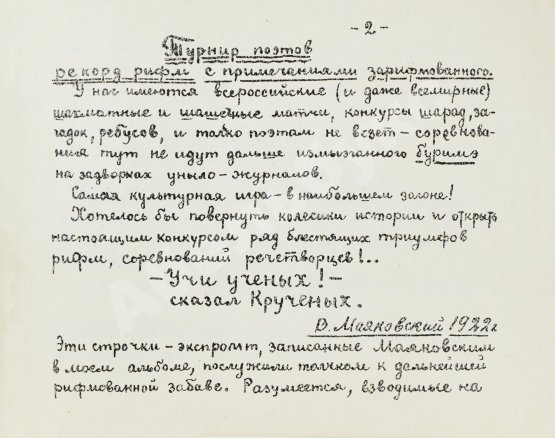 - 2 -
Турнир поэтов
рекорд рифм с примечаниями зарифмованного.
У нас имеются всероссийские (и даже всемирные)
шахматные и шашечные матчи, конкурсы шарад, за-
гадок, ребусов, и только поэтам не везет - соревнова-
ния тут не идут дальше измызганного буримэ
на задворках уныло-журналов.
Самая культурная игра - в наибольшем загоне!
Хотелось бы повернуть колесики истории и открыть
настоящим конкурсом ряд блестящих триумфов
рифм, соревнований речетворцев!..
- Учи ученых! -
сказал Крученых.
В. Маяковский 1922г.
Эти строчки - экспромт, записанные Маяковским
в моем альбоме, послужили толчком к дальнейшей
рифмованной забаве. Разумеется, взводимые на